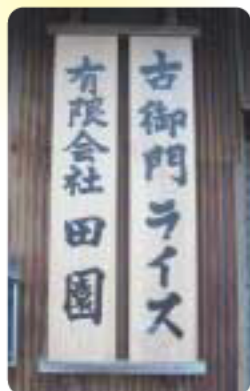 古御門ライス
有限会社 田園